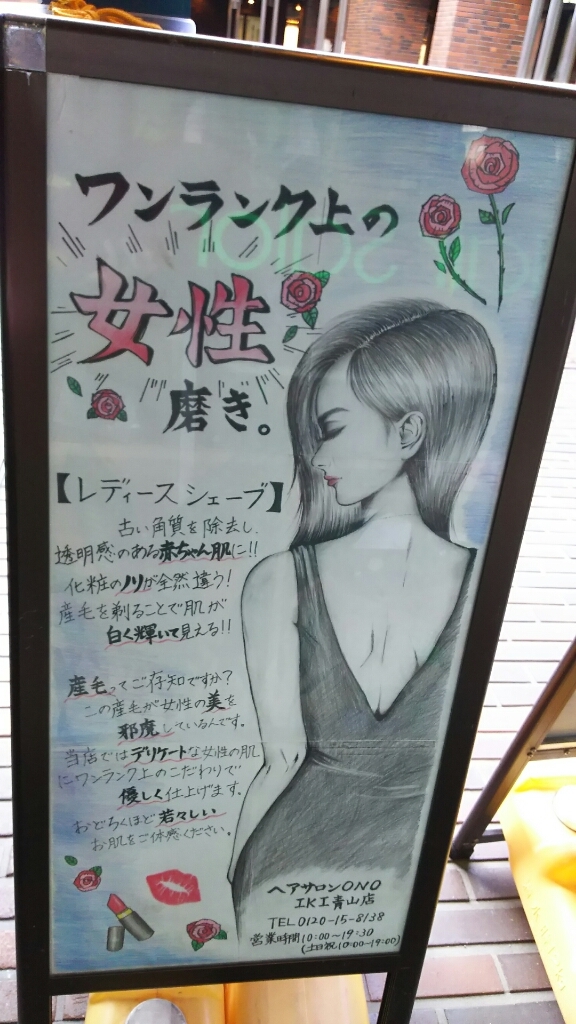 ワンランク上の
女性
磨き。
【レディースシェーブ】
古い角質を除去し、
透明感のある赤ちゃん肌に!!
化粧のノリが全然違う!
産毛を剃ることで肌が
白く輝いて見える!!
産毛ってご存知ですか?
この産毛が女性の美を
邪魔しているんです。
当店ではデリケートな女性の肌
にワンランク上のこだわりで
優しく仕上げます。
おどろくほど若々しい
お肌をご体感ください。
ヘアサロンONO
エKエ青山店
TEL0120-15-8138
営業時間10:00〜19:30
(土日祝10:00〜19:00)